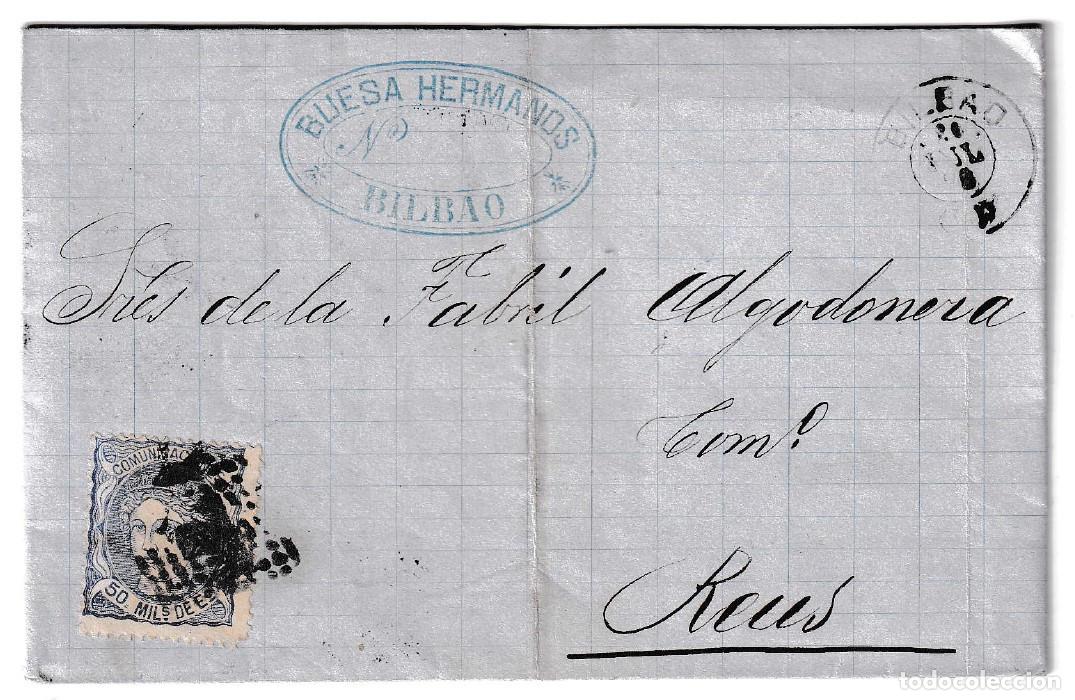 BUESA HERMANOS
Nº
BILBAO
BILBAO
20
JUL
Sres de la Fabril Algodonera
Comº
Reus
COMUNICAC
50 MILS. DE ES
todocoleccion